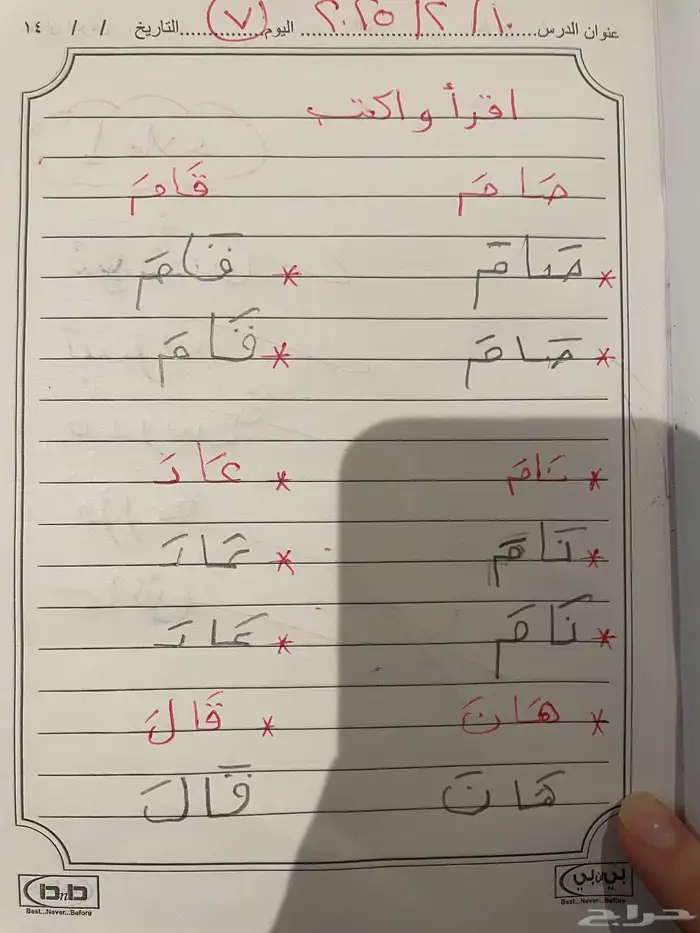 عنوان الدرس ٢٠٢٥/٢/١٠ اليوم (٧) التاريخ / / ١٤
اقرأ واكتب
صَامَ قَامَ
* صَامَ * قَامَ
* صَامَ * قَامَ
* نَامَ * عَادَ
* نَامَ * عَادَ
* نَامَ * عَادَ
* هَانَ * قَالَ
هَانَ قَالَ
بي n بي دا n دا
Best...Never...Before Best...Never...Before
حراج